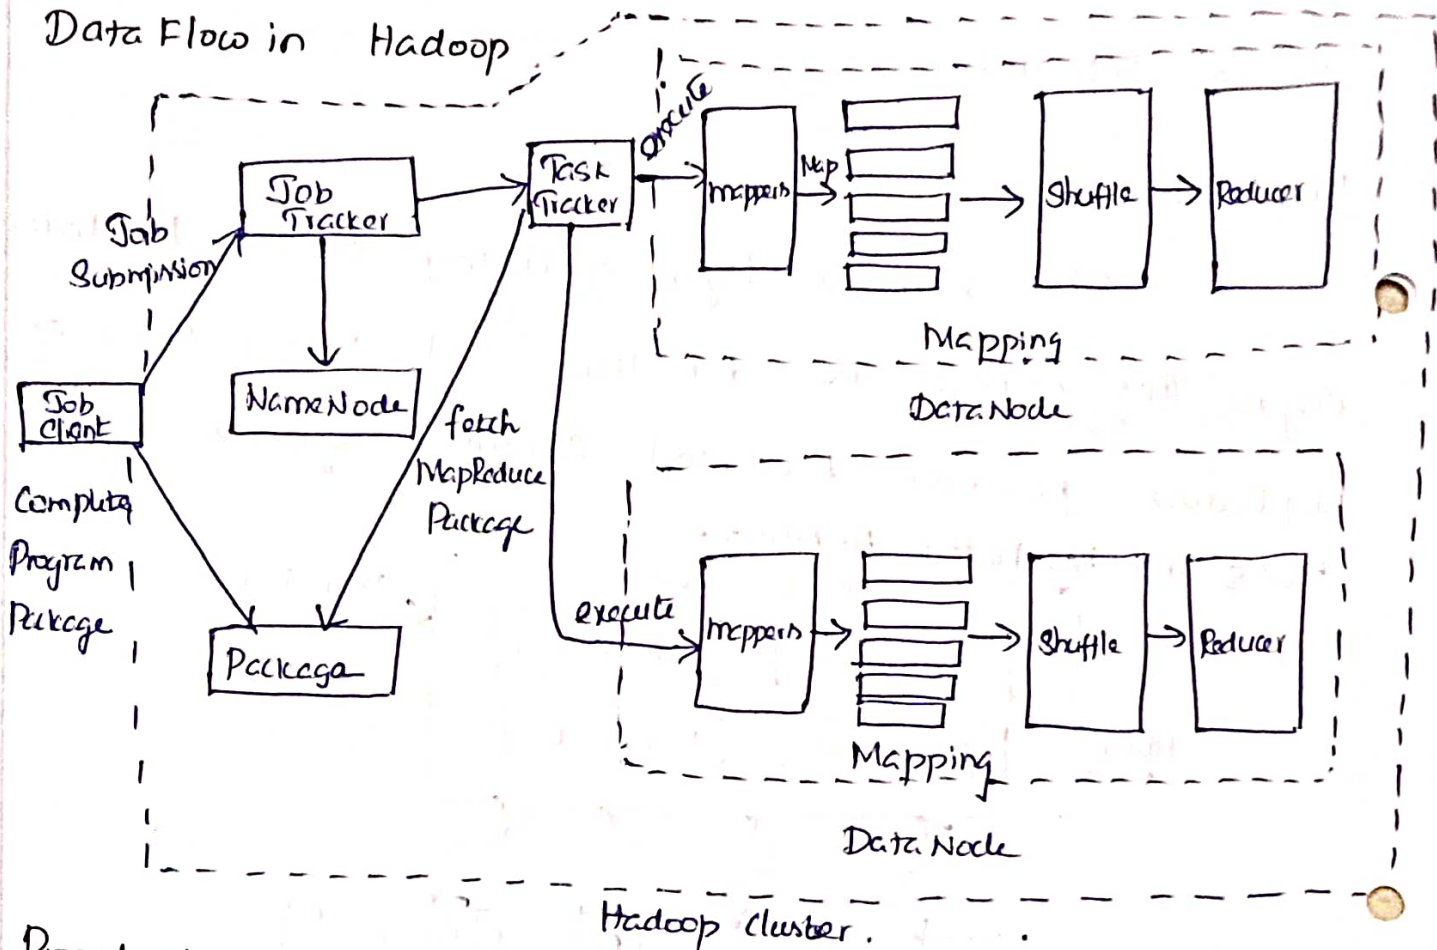 Data Flow in Hadoop
execute
Job
Tracker
Task
Tracker
mappers
Map
Shuffle
Reducer
Job
Submission
Mapping
NameNode
Job
Client
DataNode
fetch
MapReduce
Package
Complete
Program
Package
execute
mappers
Shuffle
Reducer
Package
Mapping
DataNode
Hadoop Cluster.